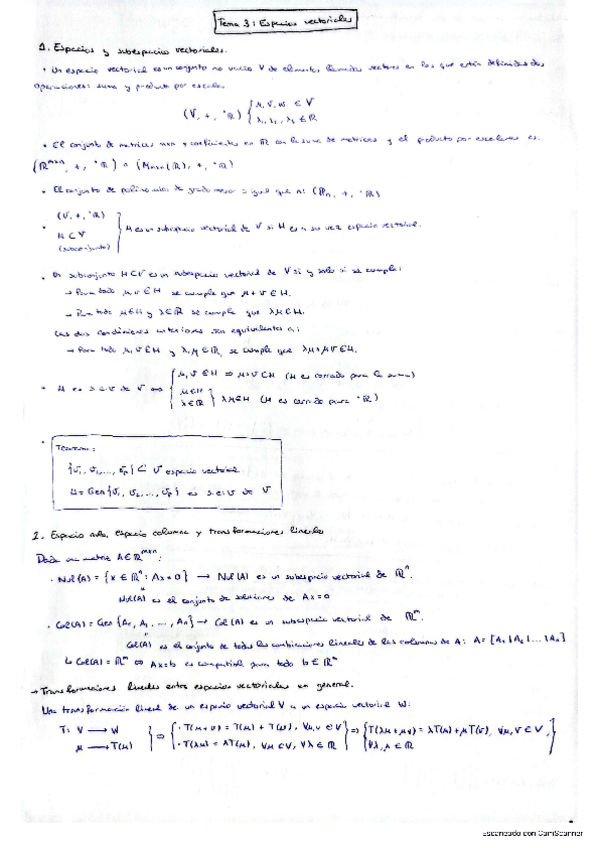 Tema 3: Espacios vectoriales
1. Espacios y subespacios vectoriales.
• Un espacio vectorial es un conjunto no vacío V de elementos llamados vectores en los que están definidas dos
operaciones: suma y producto por escalar.
(V, +, ·ℝ) { u, v, w ∈ V
λ₁, λ₂, λ₃ ∈ ℝ
• El conjunto de matrices mxn y coeficientes en ℝ con la suma de matrices y el producto por escalares es:
(ℝᵐˣⁿ, +, ·ℝ) o (Mmxn(ℝ), +, ·ℝ)
• El conjunto de polinomios de grado menor o igual que n: (ℙn, +, ·ℝ)
• (V, +, ·ℝ)
H ⊂ V
(subconjunto) } H es un subespacio vectorial de V si H es a su vez espacio vectorial.
• Un subconjunto H⊂V es un subespacio vectorial de V si y solo si se cumple:
→ Para todo u, v ∈ H se cumple que u + v ∈ H.
→ Para todo u∈H y λ∈ℝ se cumple que λu∈H.
Las dos condiciones anteriores son equivalentes a:
→ Para todo u, v ∈ H y λ, μ ∈ ℝ, se cumple que λu+μv ∈ H.
• H es s.e.v de V ⇔ { u, v ∈ H ⇒ u+v ∈ H (H es cerrado para la suma)
u∈H
λ∈ℝ } λu∈H (H es cerrado para ·ℝ)
• Teorema:
{v₁, v₂, ..., vp} ⊂ V espacio vectorial
H = Gen{v₁, v₂, ..., vp} es s.e.v de V
2. Espacio nulo, espacio columna y transformaciones lineales
Dada una matriz A∈ℝᵐˣⁿ:
• Nul(A) = {x ∈ ℝⁿ : Ax = 0} → Nul(A) es un subespacio vectorial de ℝⁿ.
Nul(A) es el conjunto de soluciones de Ax=0
• Col(A) = Gen{A₁, A₂, ..., An} → Col(A) es un subespacio vectorial de ℝᵐ.
Col(A) es el conjunto de todas las combinaciones lineales de las columnas de A: A = [A₁|A₂|...|An]
↳ Col(A) = ℝᵐ ⇔ Ax=b es compatible para todo b∈ℝᵐ
→ Transformaciones lineales entre espacios vectoriales en general.
Una transformación lineal de un espacio vectorial V a un espacio vectorial W:
T: V → W } ⇒ { • T(u+v) = T(u) + T(v), ∀u,v ∈ V } ⇒ { T(λu+μv) = λT(u)+μT(v), ∀u, v ∈ V,
u → T(u) • T(λu) = λT(u), ∀u∈V, ∀λ∈ℝ ∀λ, μ ∈ ℝ }
Escaneado con CamScanner